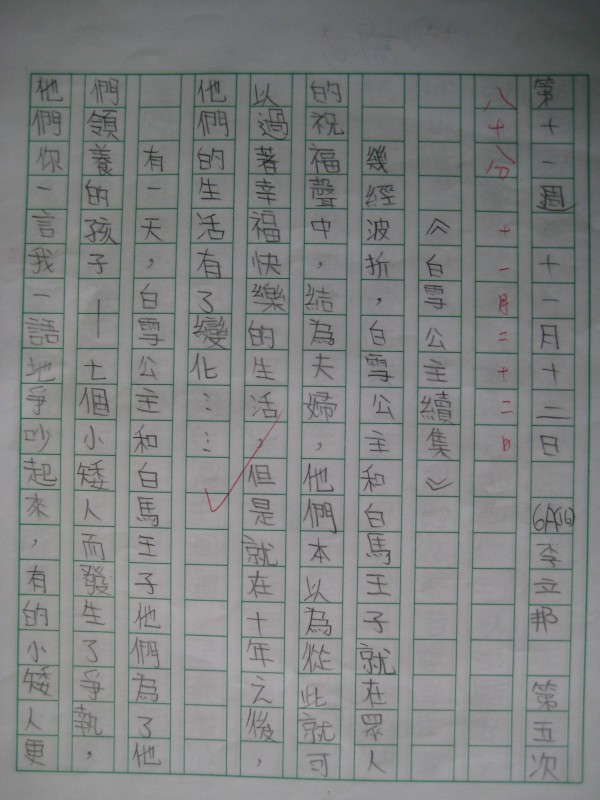 第十一週 十一月十二日 6A(16)李立邦 第五次
八十分 十一月二十二日
《白雪公主續集》
幾經波折，白雪公主和白馬王子就在眾人
的祝福聲中，結為夫婦，他們本以為從此就可
以過著幸福快樂的生活，但是就在十年之後，
他們的生活有了變化……
有一天，白雪公主和白馬王子他們為了他
們領養的孩子—七個小矮人而發生了爭執，
他們你一言我一語地爭吵起來，有的小矮人更